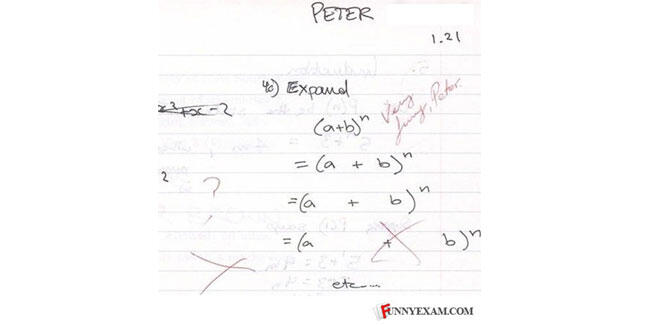 PETER
1.21
4c) Expand
x² + x - 2
Very funny, Peter.
(a+b)ⁿ
= (a + b)ⁿ
2
?
= (a   +   b)ⁿ
= (a       +       b)ⁿ
etc....
FUNNYEXAM.COM